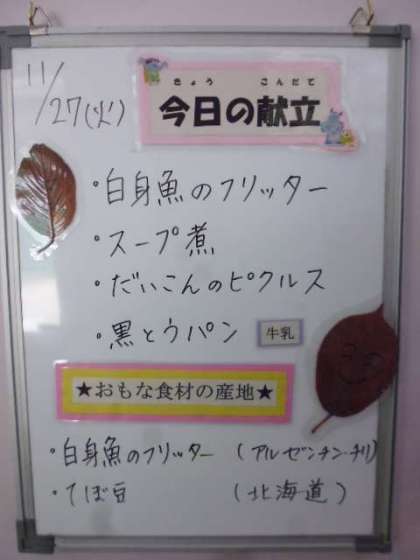 11/27(火)
きょう こんだて
今日の献立
・白身魚のフリッター
・スープ煮
・だいこんのピクルス
・黒とうパン 牛乳
★おもな食材の産地★
・白身魚のフリッター (アルゼンチン・チリ)
・てぼ豆 (北海道)